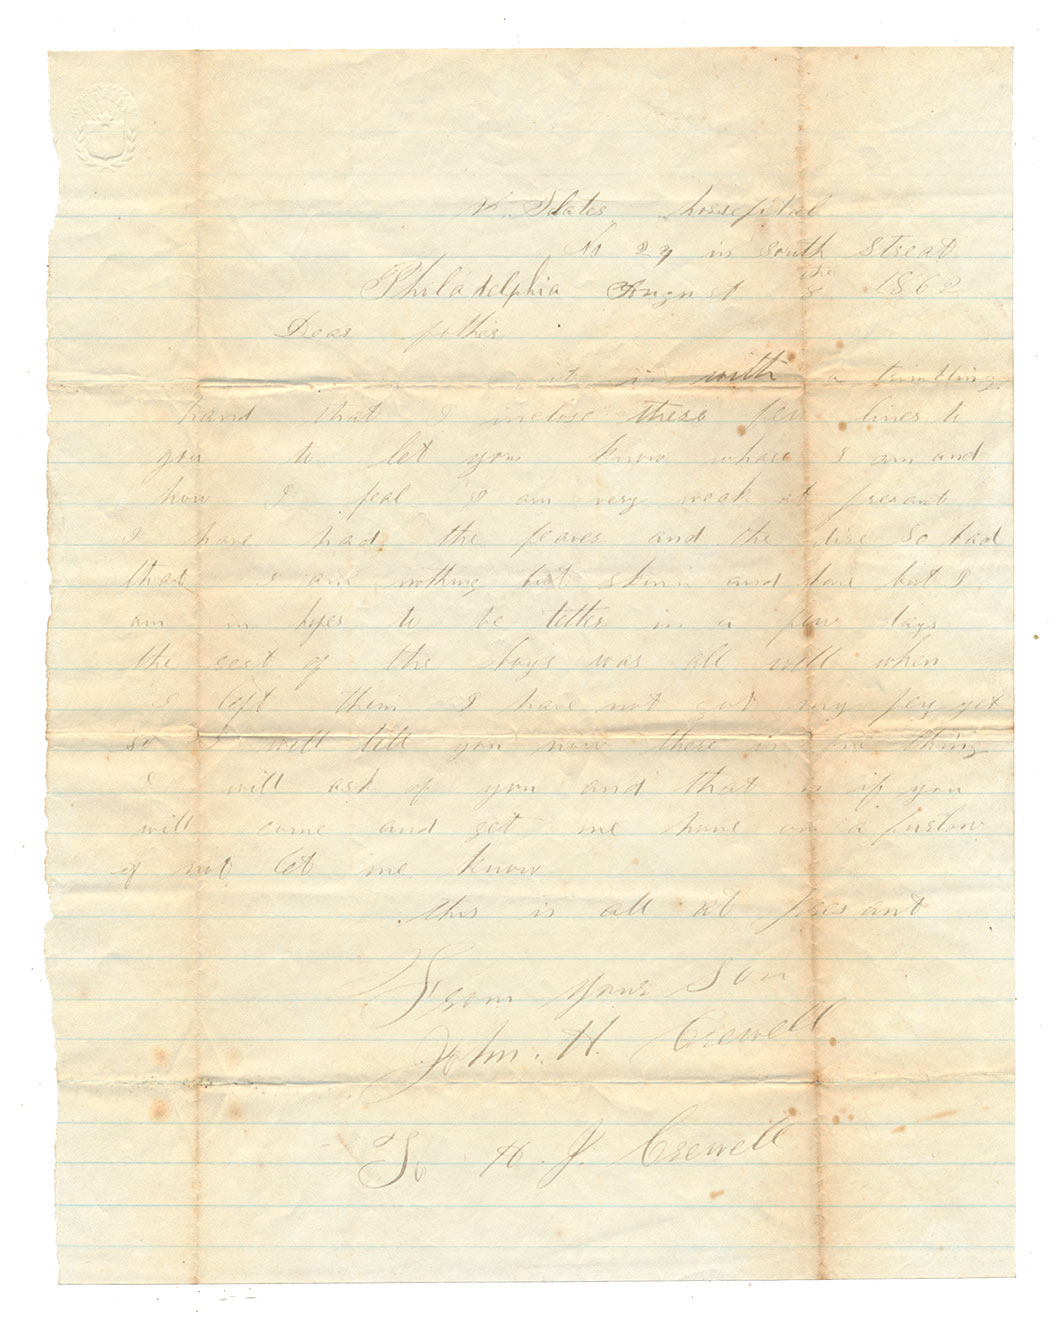 U. States hossepital
No 24 in South Streat
Philadelphia August the 8 1862
Dear father
it is with a trimbling
hand that I inclose these few lines to
you to let you know whare I am and
how I feal I am very weak at presant
I have had the feaver and the dire so bad
that I am nothing but skinn and bone but I
am in hopes to be better in a few days
the rest of the boys was all well when
I left them I have not got my pey yet
so I will tell you now there is one thing
I will ask of you and that is if you
will come and get me home on a furlow
if not let me know
this is all at presant
From your son
John. H. Crewell
To H. J. Crewell